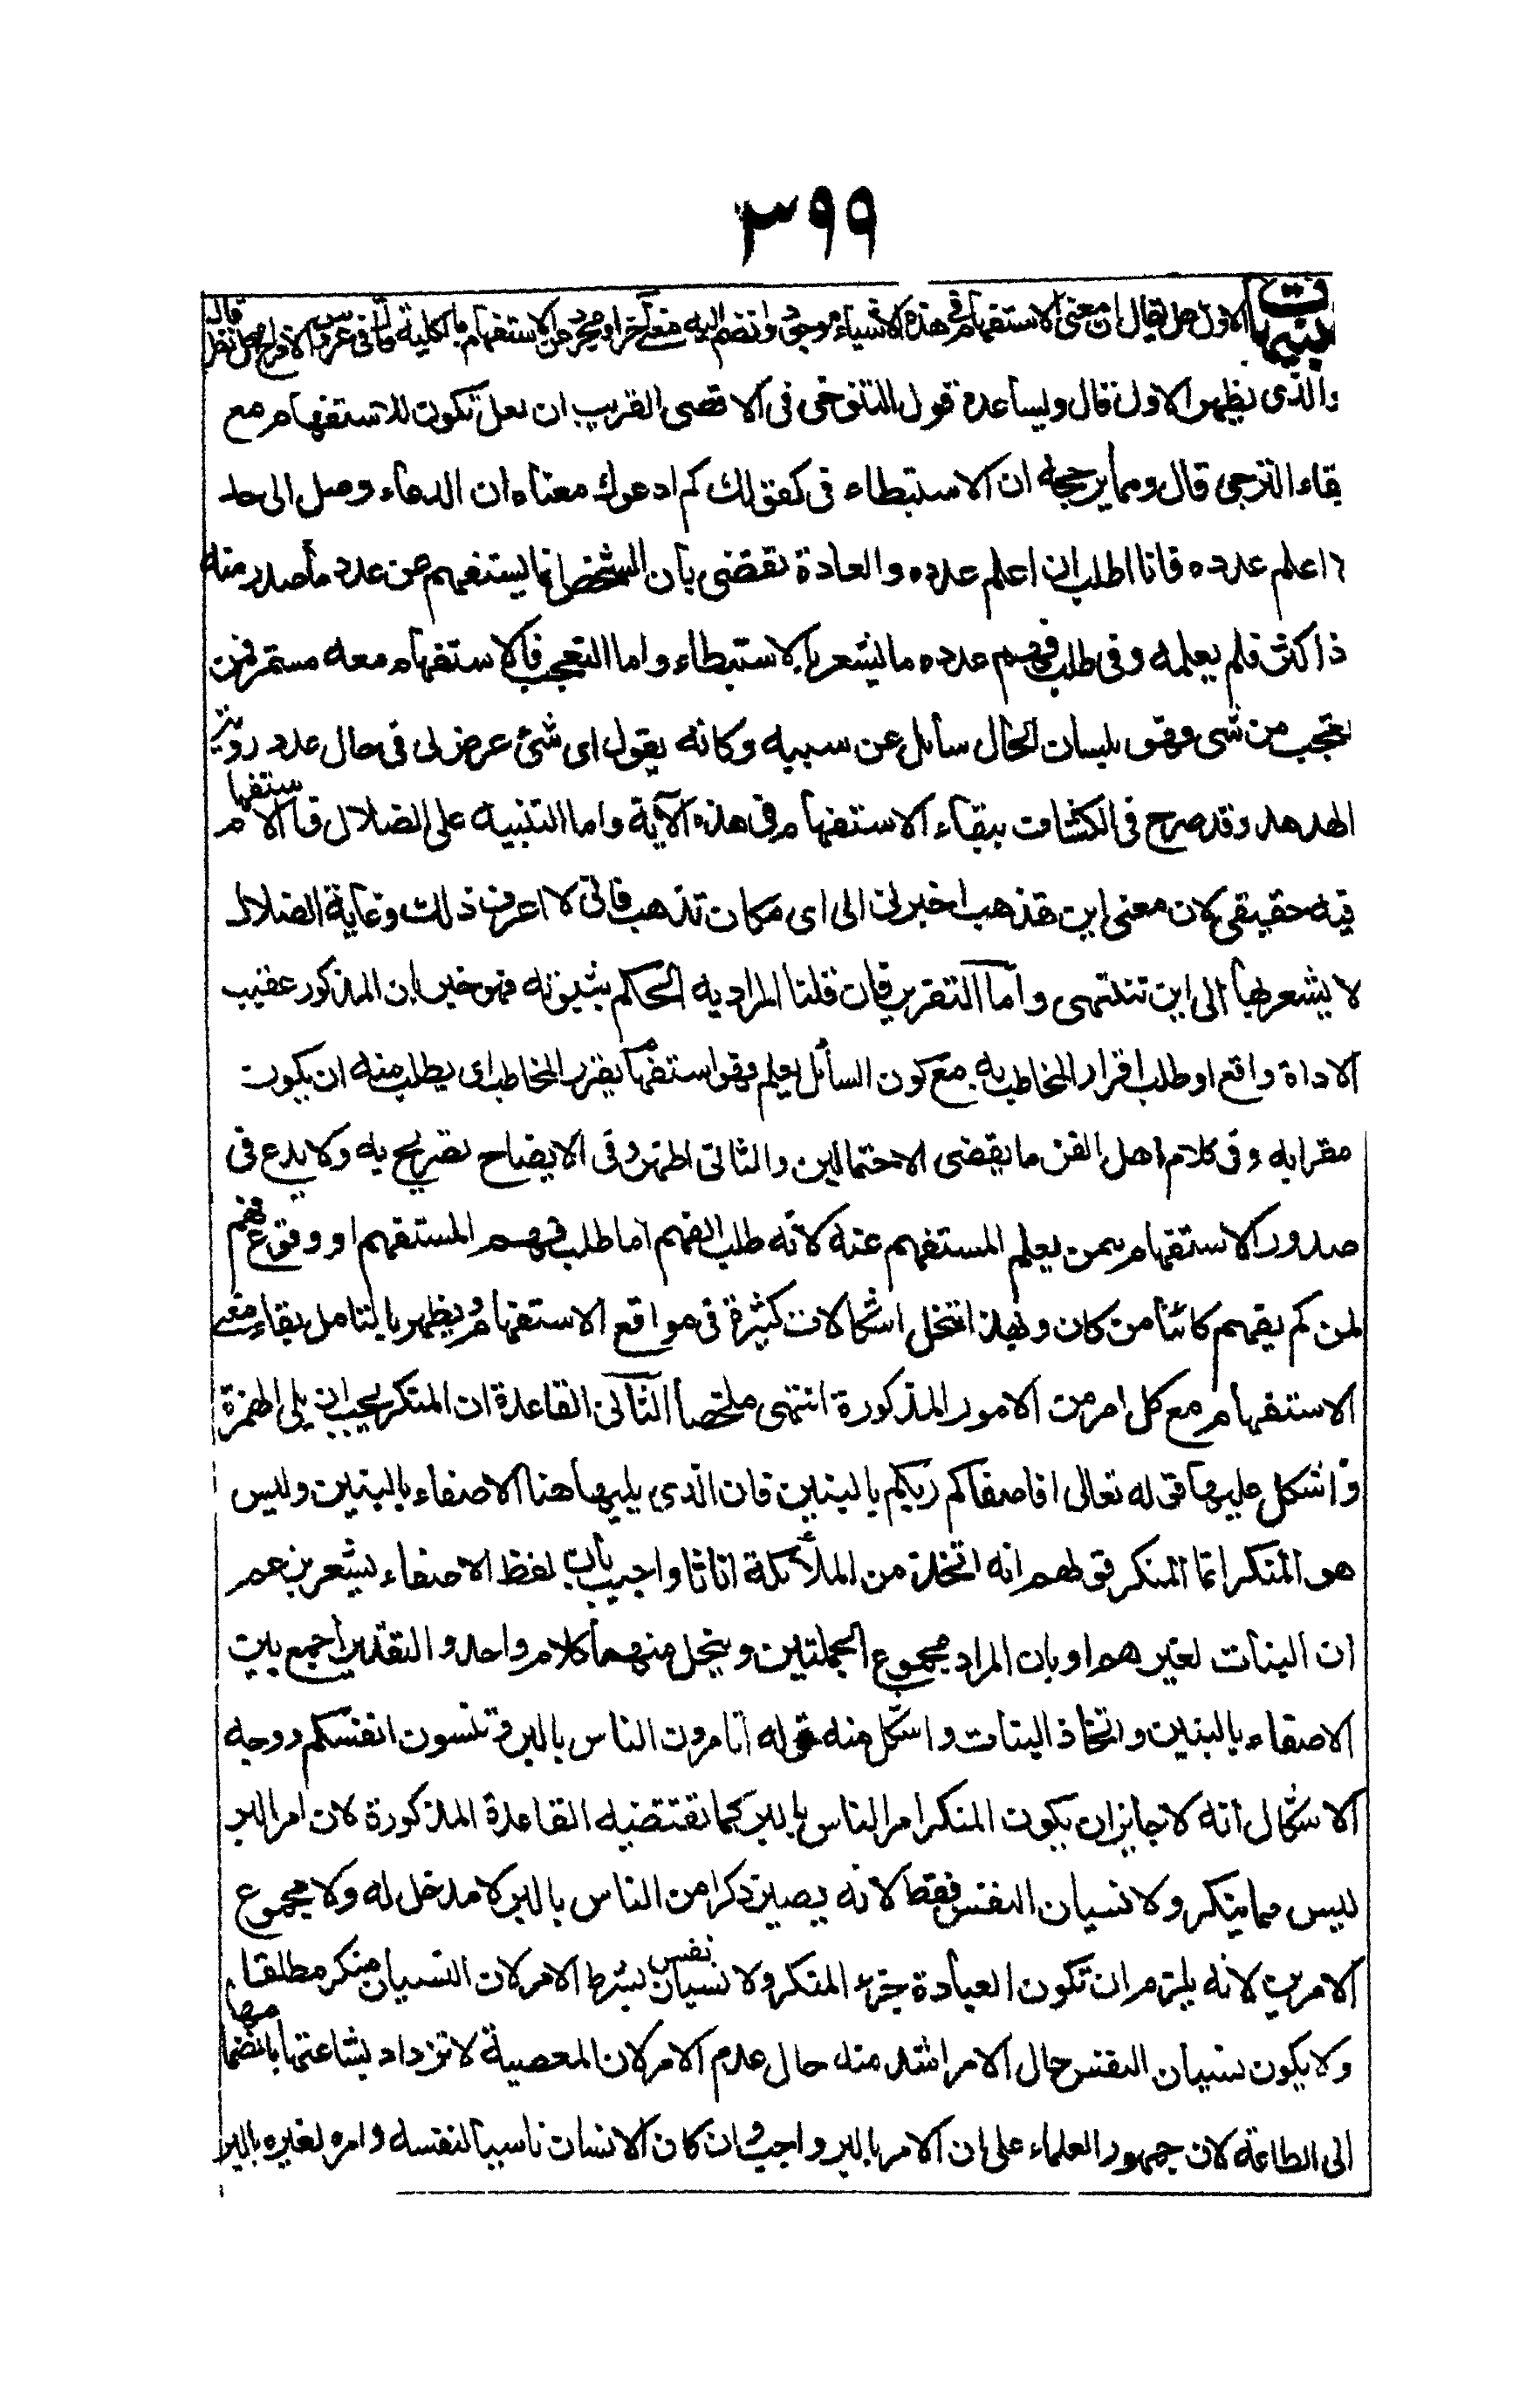 ٣٩٩
تنبيهات الاول هل يقال ان معنى الاستفهام في هذه الاشياء موجود وانضم اليه معنى آخر او مجرد عن الاستفهام بالكلية قال في عروس الافراح محل نظر قال
والذى يظهر الاول قال ويساعده قول التنوخى فى الاقصى القريب ان لعل تكون للاستفهام مع
بقاء الترجى قال ومما يرجحه ان الاستبطاء فى كقولك كم ادعوك معناه ان الدعاء وصل الى حد
لا اعلم عدده فانا اطلب ان اعلم عدده والعادة تقضى بان الشخص انما يستفهم عن عدد ما صدر منه
اذا كثر فلم يعلمه وفى طلب فهم عدده ما يشعر بالاستبطاء واما التعجب فالاستفهام معه مستمر فمن
تعجب من شى فهو بلسان الحال سائل عن سببه وكانه يقول اى شئ عرض لى فى حال عدم رويتى
الهدهد وقد صرح فى الكشاف ببقاء الاستفهام فى هذه الآية واما التنبيه على الضلال فالاستفهام
فيه حقيقى لان معنى اين تذهب اخبرنى الى اى مكان تذهب فانى لا اعرف ذلك وغاية الضلال
لا يشعر بها الى اين تنتهى واما التقرير فان قلنا المراد به الحكم بثبوته فهو خبر بان المذكور عقيب
الاداة واقع او طلب اقرار المخاطب به مع كون السائل يعلم فهو استفهام يقرر المخاطب اى يطلب منه ان يكون
مقرا به وفى كلام اهل الفن ما يقضى الاحتمالين والثانى اظهر وفى الايضاح تصريح به ولا بدع فى
صدور الاستفهام ممن يعلم المستفهم عنه لانه طلب الفهم اما طلب فهم المستفهم او وقوع فهم
لمن لم يفهم كائنا من كان وبهذا تنحل اشكالات كثيرة فى مواقع الاستفهام ويظهر بالتامل بقاء معنى
الاستفهام مع كل امر من الامور المذكورة انتهى ملخصا الثانى القاعدة ان المنكر يجب ان يلى الهمزة
واشكل عليها قوله تعالى افاصفاكم ربكم بالبنين فان الذى يليها هنا الاصفاء بالبنين وليس
هو المنكر انما المنكر قولهم انه اتخذ من الملائكة اناثا واجيب بان لفظ الاصفاء يشعر بزعم
ان البنات لغيرهم او بان المراد مجموع الجملتين وينحل منهما كلام واحد والتقدير اجمع بين
الاصفاء بالبنين واتخاذ البنات واشكل منه قوله اتامرون الناس بالبر وتنسون انفسكم ووجه
الاشكال انه لا جايز ان يكون المنكر امر الناس بالبر كما تقتضيه القاعدة المذكورة لان امر البر
ليس مما ينكر ولا نسيان النفس فقط لانه يصير ذكر امر الناس بالبر لا مدخل له ولا مجموع
الامرين لانه يلزم ان تكون العبادة جزء المنكر ولا نسيان نفس بشرط الامر لان النسيان منكر مطلقا
ولا يكون نسيان النفس حال الامر اشد منه حال عدم الامر لان المعصية لا تزداد بشاعتها بانضمامها
الى الطاعة لان جمهور العلماء على ان الامر بالبر واجب وان كان الانسان ناسيا لنفسه وامره لغيره بالبر